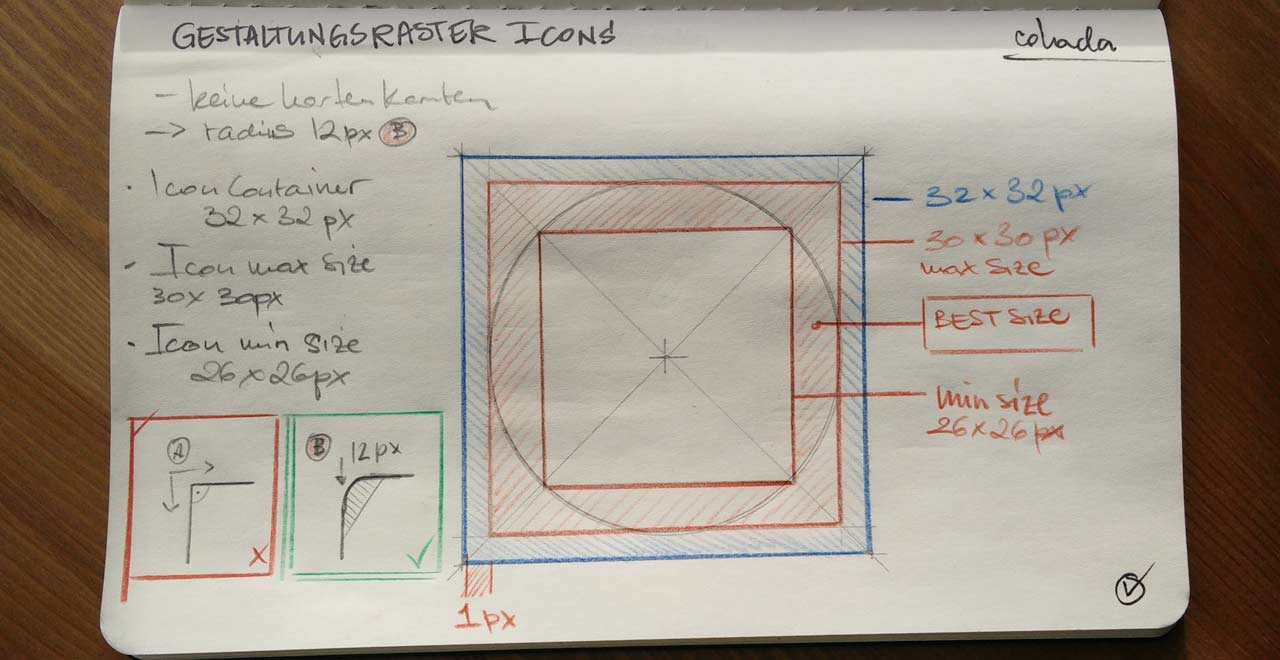 GESTALTUNGSRASTER ICONS
cobada
- keine harten Kanten
-> radius 12px B
· Icon Container
32 x 32 px
- Icon max size
30 x 30px
· Icon min size
26 x 26px
A
x
B 12px
32 x 32 px
30 x 30 px
max size
BEST SIZE
min size
26 x 26 px
1px